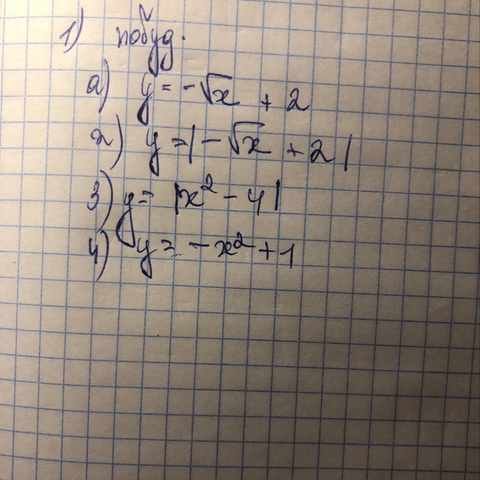 1) побуд.
а) y = -√x + 2
2) y = |-√x + 2|
3) y = |x² - 4|
4) y = -x² + 1